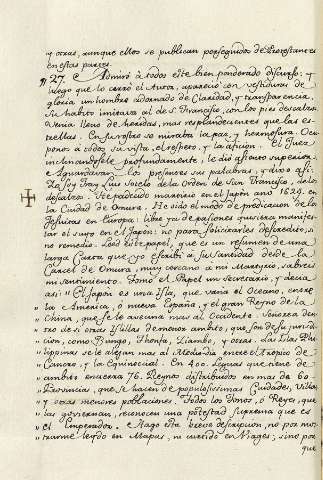 y otras, aunque ellos se publican perseguidos de Protestantes
en estas partes.
27. Admiró à todos este bien ponderado discurso: y
luego que lo cerró el Autor, apareció con vestiduras de
gloria un hombre adornado de Claridad, y transparencia.
Su habito imitava al de S. Francisco, con los pies descalzos.
Venia lleno de heridas, mas resplandecientes que las es-
trellas. En su rostro se mirava la paz, y hermosura. Ocu-
ponos à todos su vista, el respeto, y la aficion. El Juez
inclinandosele profundamente, le dió assiento superior,
è aguardaron los presentes sus palabras, y dixo assi.
Yo soy Fray Luis Sotelo de la Orden de San Francisco, de los
descalzos. Fui padecido martirio en el Japon año 1624. en
la Ciudad de Omura. He oido el modo de predicacion de los
Jesuitas en Europa: libre ya de pasiones quisiera manifes-
tar el suyo en el Japón: no para solicitarles descredito, si
no remedio. Leed este papel, que es un resumen de una
larga Carta que yo escribí à su Santidad desde la
Carcel de Omura, muy cercano a mi Martyrio, sabreis
mi sentimiento. Tomó el Papel un Secretario, y decia
asi: El Japon es una Isla, que varia el Oceano, entre
la America, ò nueva España, y el gran Reyno de la
China, que se le avecina mas al Occidente. Señorea den-
tro de si otras Islillas de menos ambito, que son de su juridi-
cion, como Bungo, Tienfa, Ziambo, y otras. Las Islas Phi-
lippinas se le alejan mas al Mediodia entre el Tropico de
Cancro, y la Equinoccial. En 400. Leguas que tiene de
ambito encierra 76. Reynos distribuidos en mas de 60.
Provincias, que se hacen de populosissimas Ciudades, Villas,
y otras menores poblaciones. Todos los Tonos, ò Reyes, que
las goviernan, reconocen una potestad suprema que es
el Emperador. Hago esta breve descripcion, no por mos-
trarme leydo en Mapas, ni curtido en Viages; sino por
que